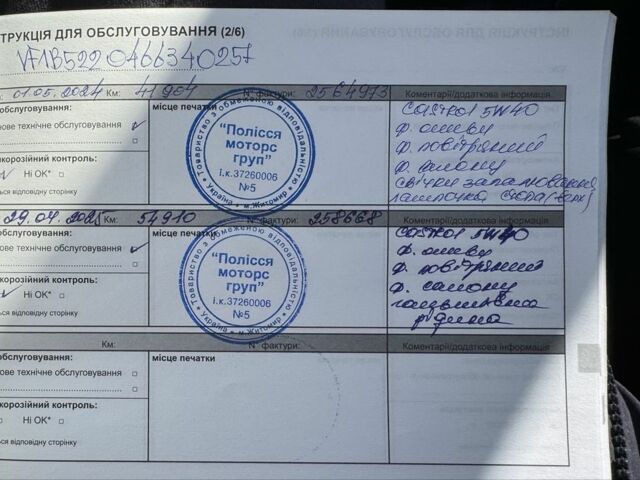 ТРУКЦІЯ ДЛЯ ОБСЛУГОВУВАННЯ (2/6)
VF1B5220466340257
01.05.2024 Км: 41904 N° фактури: 2564973 Коментарі/додаткова інформація
обслуговування:
ове технічне обслуговування ✓
корозійний контроль:
Ні OK* □
ься відповідну сторінку
місце печатки
Товариство з обмеженою відповідальністю
"Полісся
моторс
груп"
і.к.37260006
№5
Україна • м.Житомир
Castrol 5W40
ф. оливу
ф. повітряний
ф. салону
свічки запалювання
29.04.2025 Км: 54910 N° фактури: 258668 Коментарі/додаткова інформація
обслуговування:
ове технічне обслуговування ✓
озійний контроль:
Ні OK* □
ься відповідну сторінку
місце печатки
Товариство з обмеженою відповідальністю
"Полісся
моторс
груп"
і.к.37260006
№5
Україна • м.Житомир
Castrol 5W40
ф. оливу
ф. повітряний
ф. салону
гальмівна
рідина
Км: N° фактури: Коментарі/додаткова інформація
обслуговування:
ове технічне обслуговування □
корозійний контроль:
□ Ні OK* □
ься відповідну сторінку
місце печатки